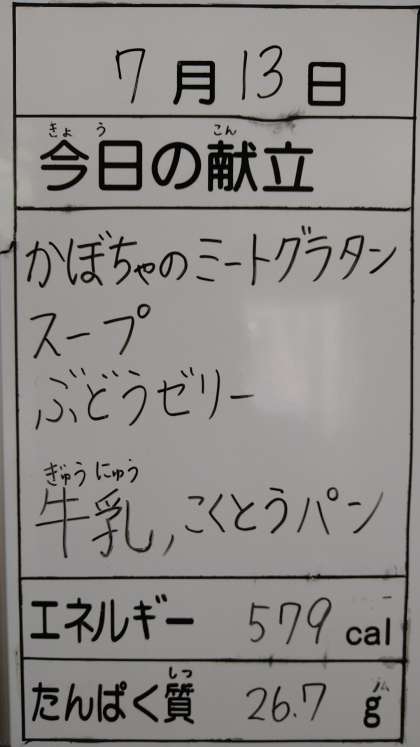 7月13日
きょう こん
今日の献立
かぼちゃのミートグラタン
スープ
ぶどうゼリー
ぎゅうにゅう
牛乳,こくとうパン
エネルギー 579 cal
しつ
たんぱく質 26.7 g